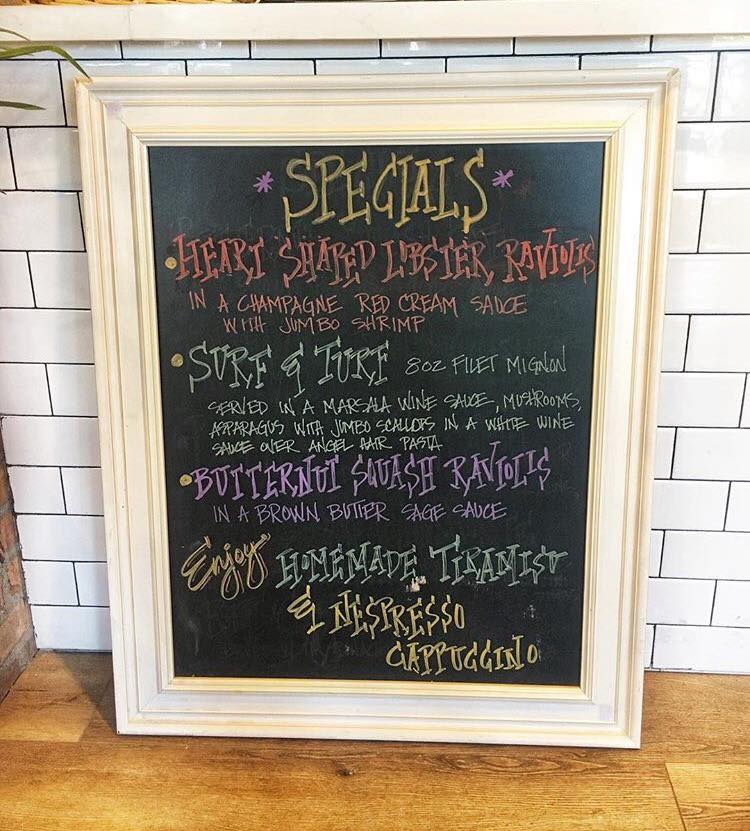 * SPECIALS *
HEART SHAPED LOBSTER RAVIOLIS
IN A CHAMPAGNE RED CREAM SAUCE
WITH JUMBO SHRIMP
SURF & TURF 8OZ FILET MIGNON
SERVED IN A MARSALA WINE SAUCE, MUSHROOMS,
ASPARAGUS WITH JUMBO SCALLOPS IN A WHITE WINE
SAUCE OVER ANGEL HAIR PASTA
BUTTERNUT SQUASH RAVIOLIS
IN A BROWN BUTTER SAGE SAUCE
Enjoy HOMEMADE TIRAMISU
& NESPRESSO
CAPPUCCINO